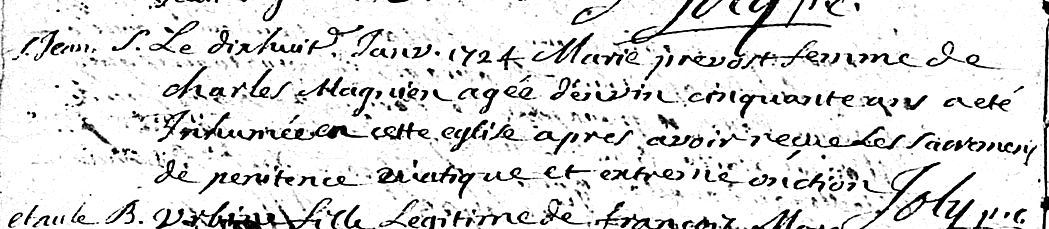 Joly p.c.
St Jean. S. Le dixhuit Janv. 1724 Marie prevost femme de
charles Magnien agée d'envin cinquante ans a eté
Inhumée en cette eglise apres avoir reçue Les sacremens
de penitence viatique et extreme onction Joly p.c.
B. fille Legitime de françois